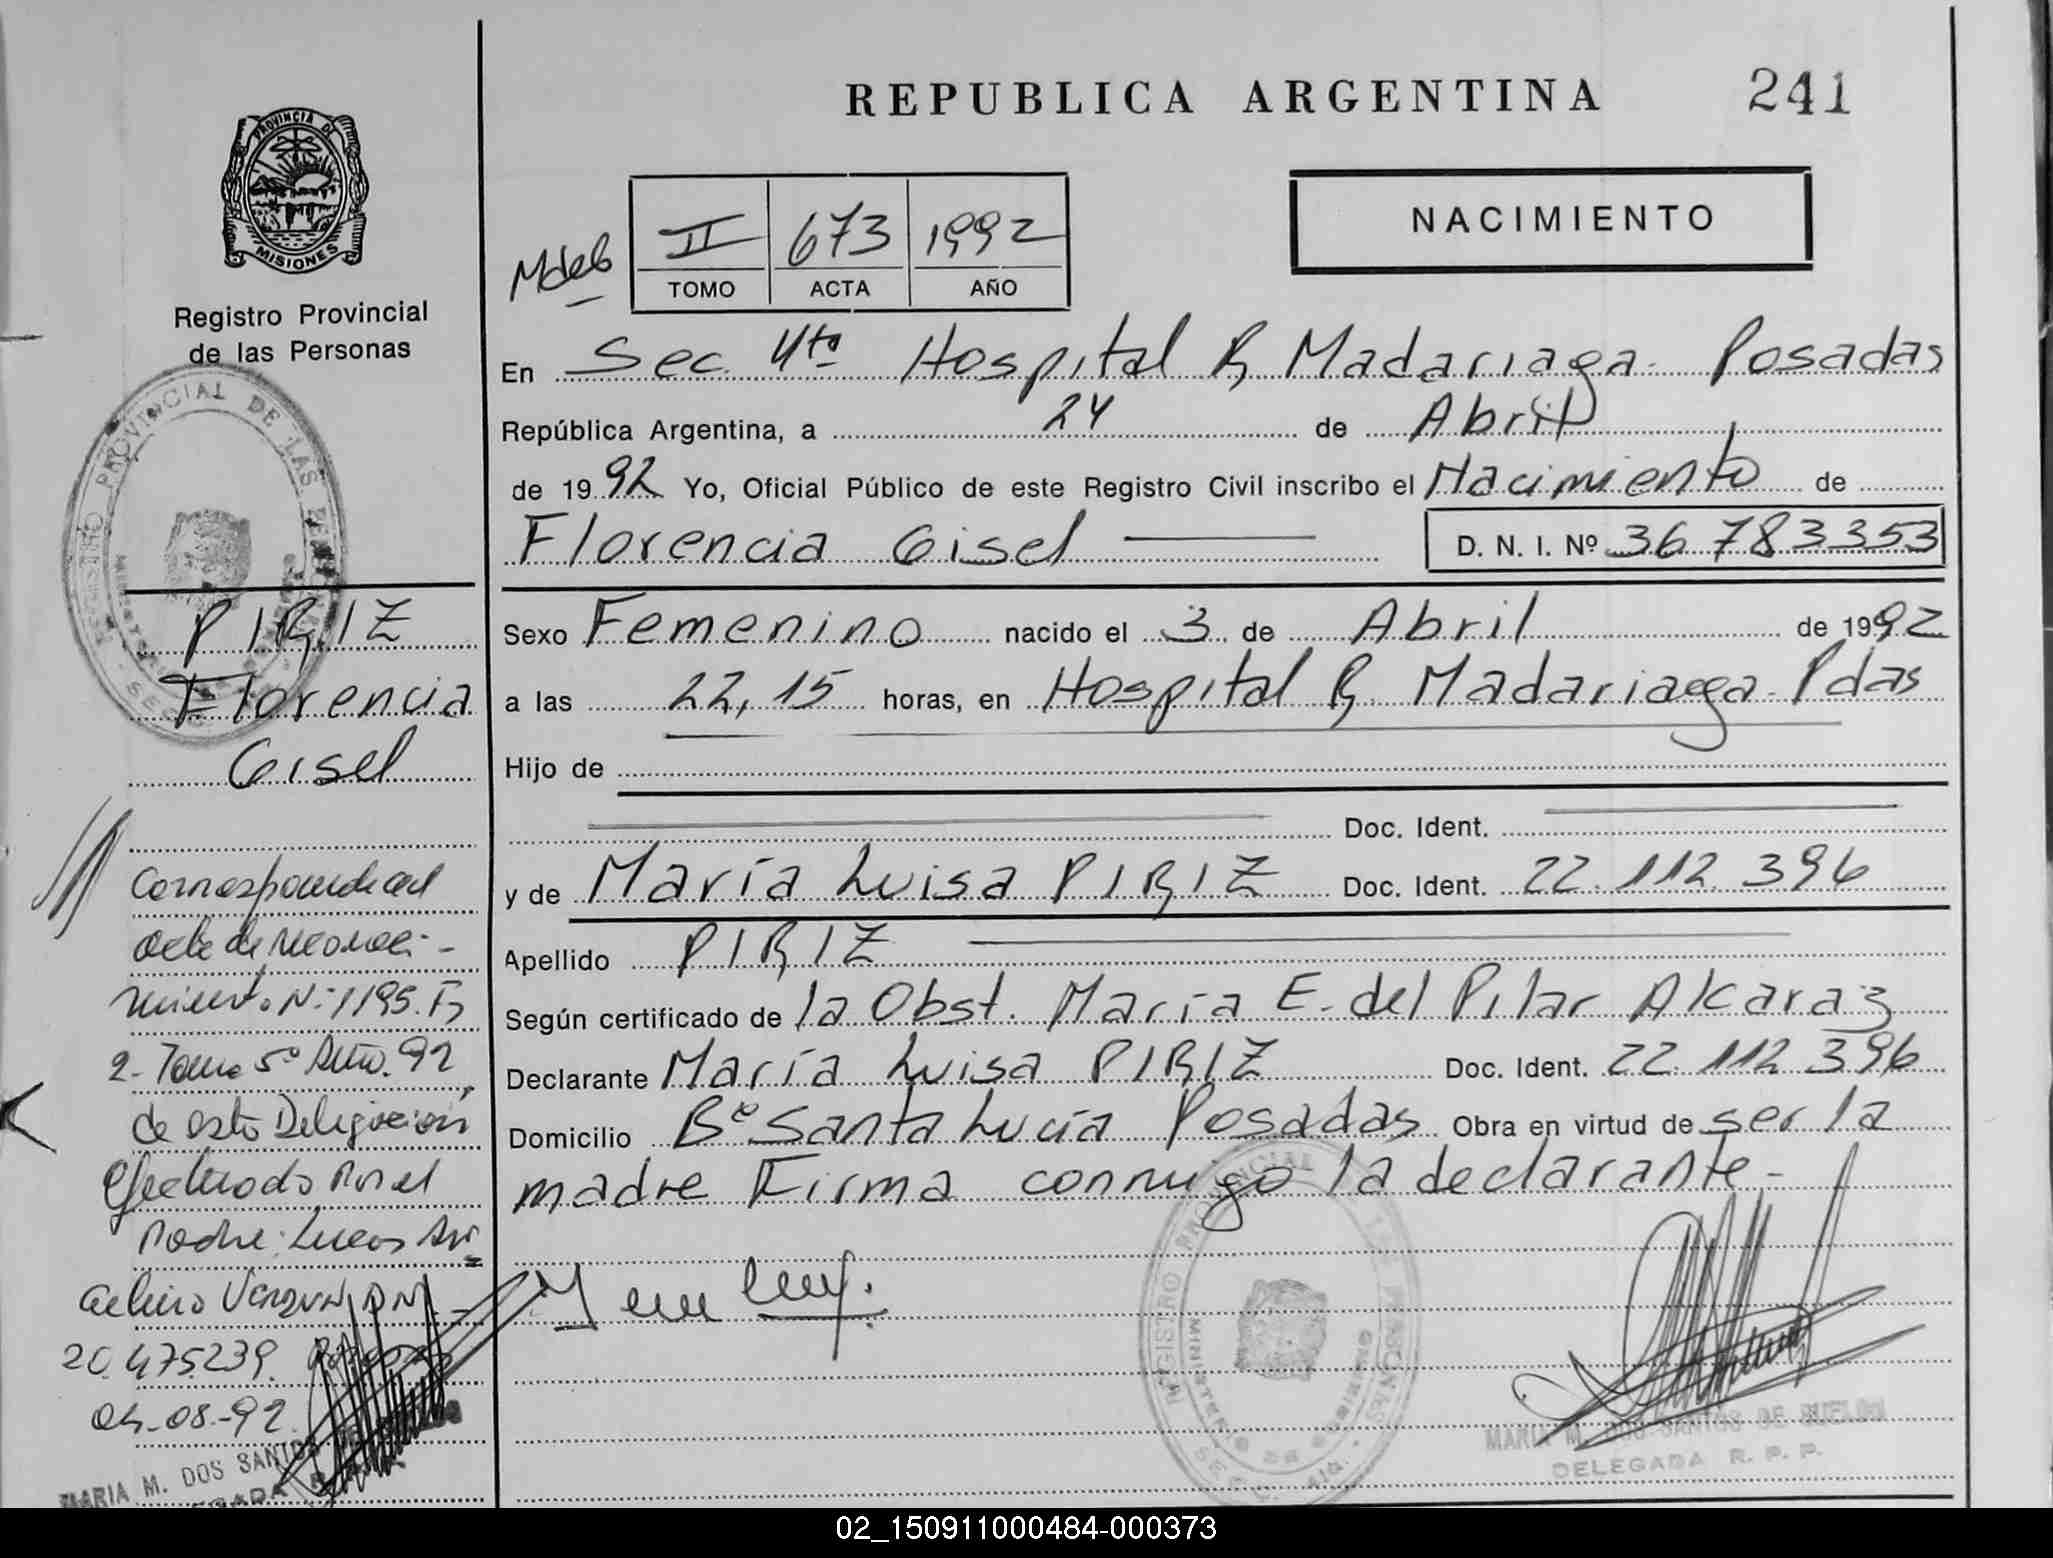 REPUBLICA ARGENTINA 241
PROVINCIA DE
MISIONES
Registro Provincial
de las Personas
NACIMIENTO
II 673 1992
TOMO ACTA AÑO
En Sec. 4ta Hospital R Madariaga - Posadas
República Argentina, a 24 de Abril
de 1992 Yo, Oficial Público de este Registro Civil inscribo el Nacimiento de
Florencia Gisel D. N. I. Nº 36 783353
Sexo Femenino nacido el 3 de Abril de 1992
a las 22,15 horas, en Hospital R Madariaga - Pdas
Hijo de
Doc. Ident.
y de María Luisa PIRIZ Doc. Ident. 22.112.396
Apellido PIRIZ
Según certificado de la Obst. María E. del Pilar Alcaraz
Declarante María Luisa PIRIZ Doc. Ident. 22.112.396
Domicilio Bº Santa Lucía Posadas Obra en virtud de ser la
madre Firma conmigo la declarante -
REGISTRO PROVINCIAL DE LAS PERSONAS
MARIA M. DOS SANTOS DE
DELEGADA R. P. P.
PIRIZ
Florencia
Gisel
Corresponde al
acta de reconoci-
miento Nº 1195. Fº
2- Tomo 5º Año. 92
de esta Delegación
efectuado por el
Padre: Lucas
20.475.239.
04-08-92.
MARIA M. DOS SANTOS
02_150911000484-000373